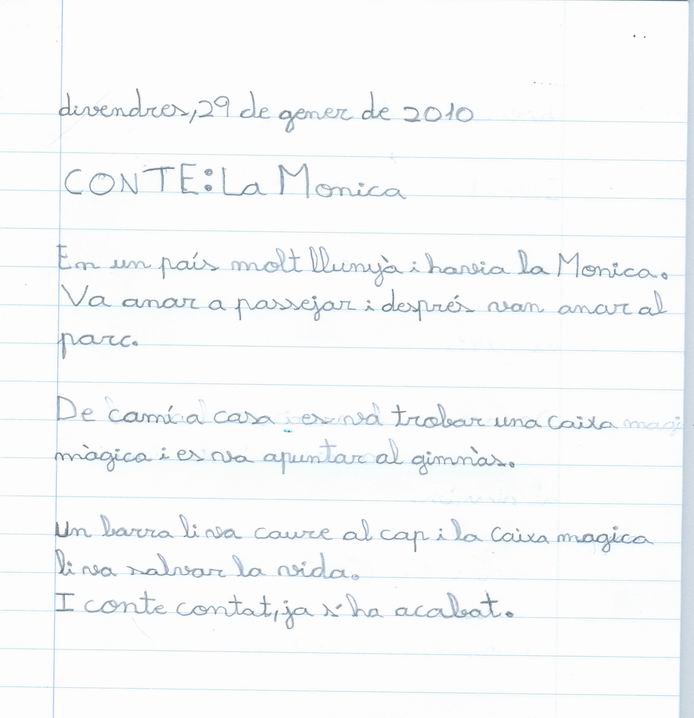 divendres, 29 de gener de 2010
CONTE: La Monica
En un país molt llunyà i havia la Monica.
Va anar a passejar i després van anar al
parc.
De camí a casa es va trobar una caixa magi
màgica i es va apuntar al gimnàs.
Un barra li va caure al cap i la caixa magica
li va salvar la vida.
I conte contat, ja s'ha acabat.